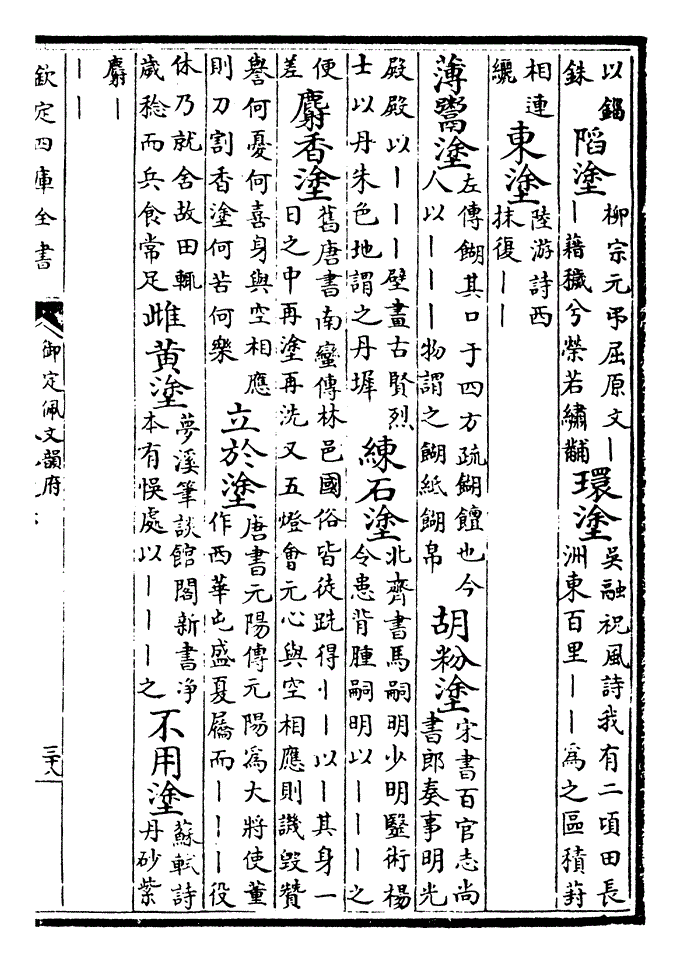 以錙銖 陷塗 柳宗元弔屈原文｜｜藉穢兮榮若繡黼 環塗 吳融祝風詩我有二頃田長洲東百里｜｜為之區積葑
相連纚 東塗 陸游詩西抹復｜｜
薄鬻塗 左傳餬其口于四方疏餬饘也今人以｜｜｜物謂之餬紙餬帛 胡粉塗 宋書百官志尚書郎奏事明光
殿殿以｜｜｜壁畫古賢烈士以丹朱色地謂之丹墀 練石塗 北齊書馬嗣明少明毉術楊令患背腫嗣明以｜｜｜之
便差 麝香塗 舊唐書南蠻傳林邑國俗皆徒跣得｜｜以｜其身一日之中再塗再洗又五燈會元心與空相應則譏毀贊
譽何憂何喜身與空相應則刀割香塗何若何樂 立於塗 唐書元陽傳元陽為大將使董作西華屯盛夏屩而｜｜｜役
休乃就舍故田輒歲稔而兵食常足 雌黃塗 夢溪筆談館閣新書凈本有悞處以｜｜｜之 不用塗 蘇軾詩丹砂紫
麝｜｜｜
欽定四庫全書 御定佩文韻府 三十八